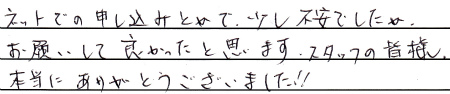 ネットでの申し込みとかで、少し不安でしたが、
お願いして良かったと思います。スタッフの皆様、
本当にありがとうございました!!